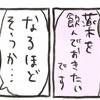 薬木を
飲んでおきたい
です
なるほど
そうか…